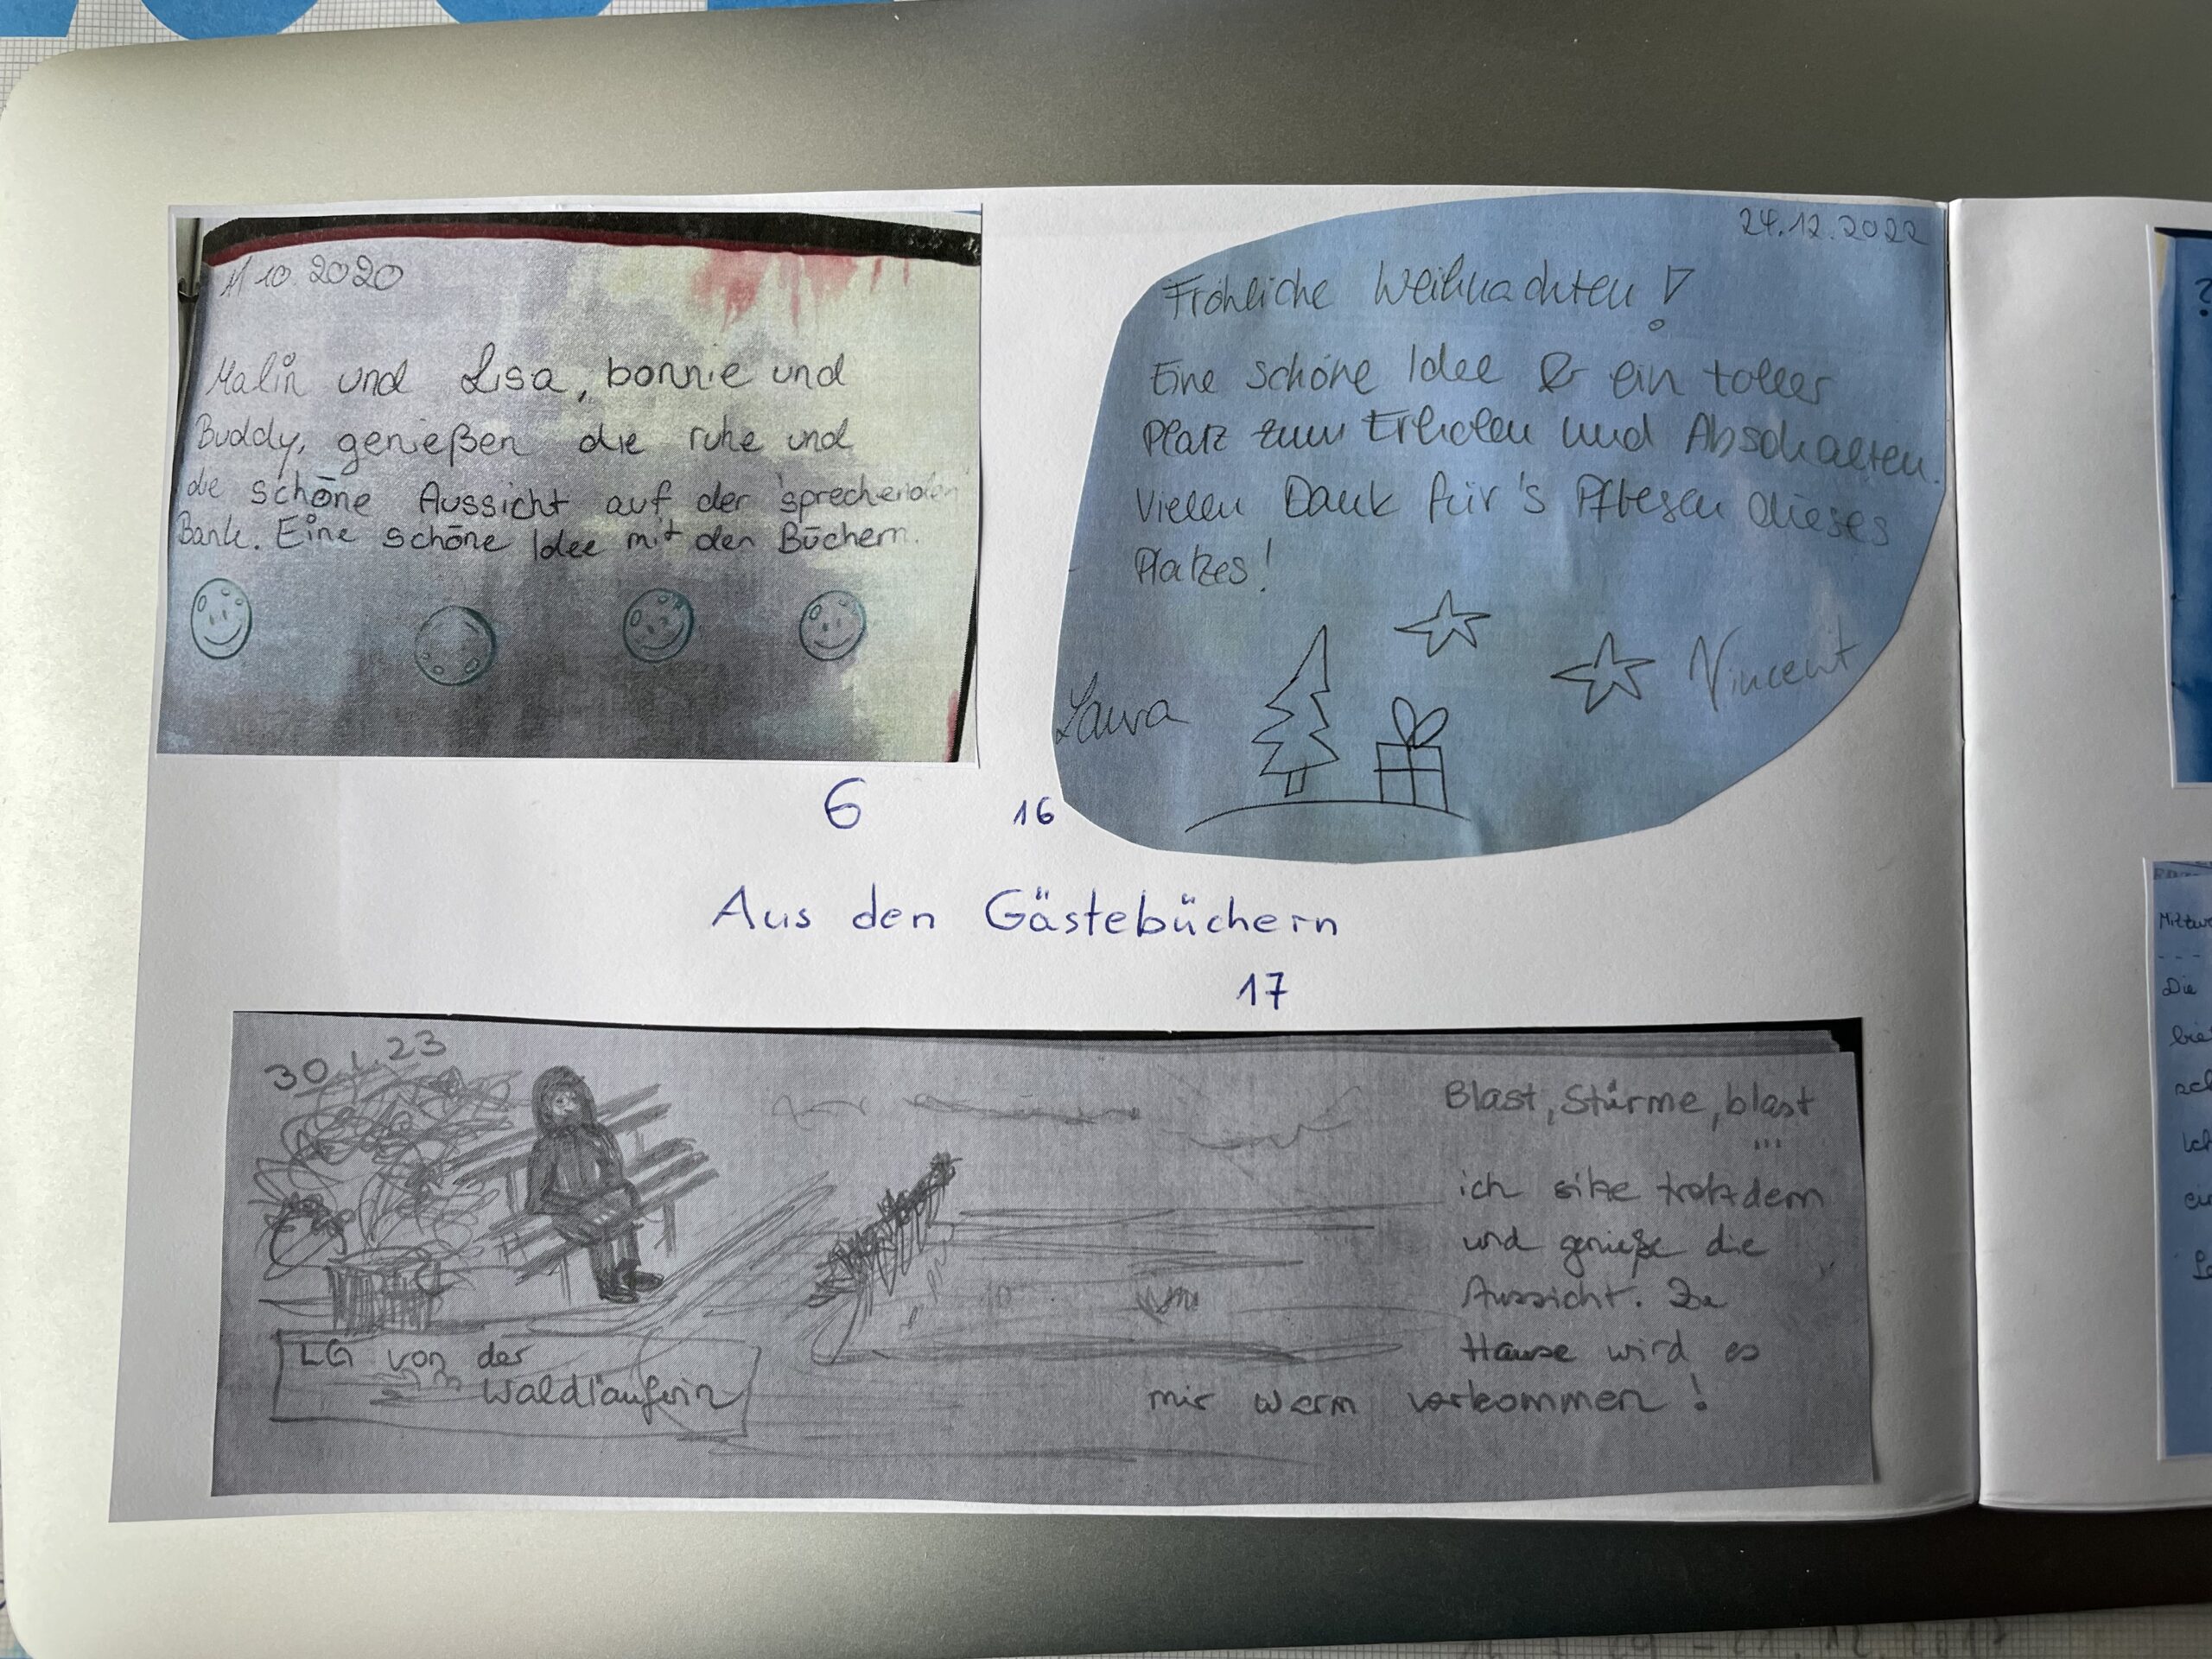 11 10. 2020
Malin und Lisa, bonnie und
Buddy, genießen die ruhe und
die schöne Aussicht auf der 'sprechenden'
Bank. Eine schöne Idee mit den Büchern.
24.12.2022
Fröhliche Weihnachten!
Eine schöne Idee & ein toller
Platz zum Erholen und Abschalten.
Vielen Dank für's Pflegen dieses
Platzes!
Laura
Vincent
6
16
Aus den Gästebüchern
17
30.1.23
Blast, Stürme, blast
...
ich sitze trotzdem
und genieße die
Aussicht. Zu
Hause wird es
mir warm vorkommen!
LG von der
Waldläuferin
Die